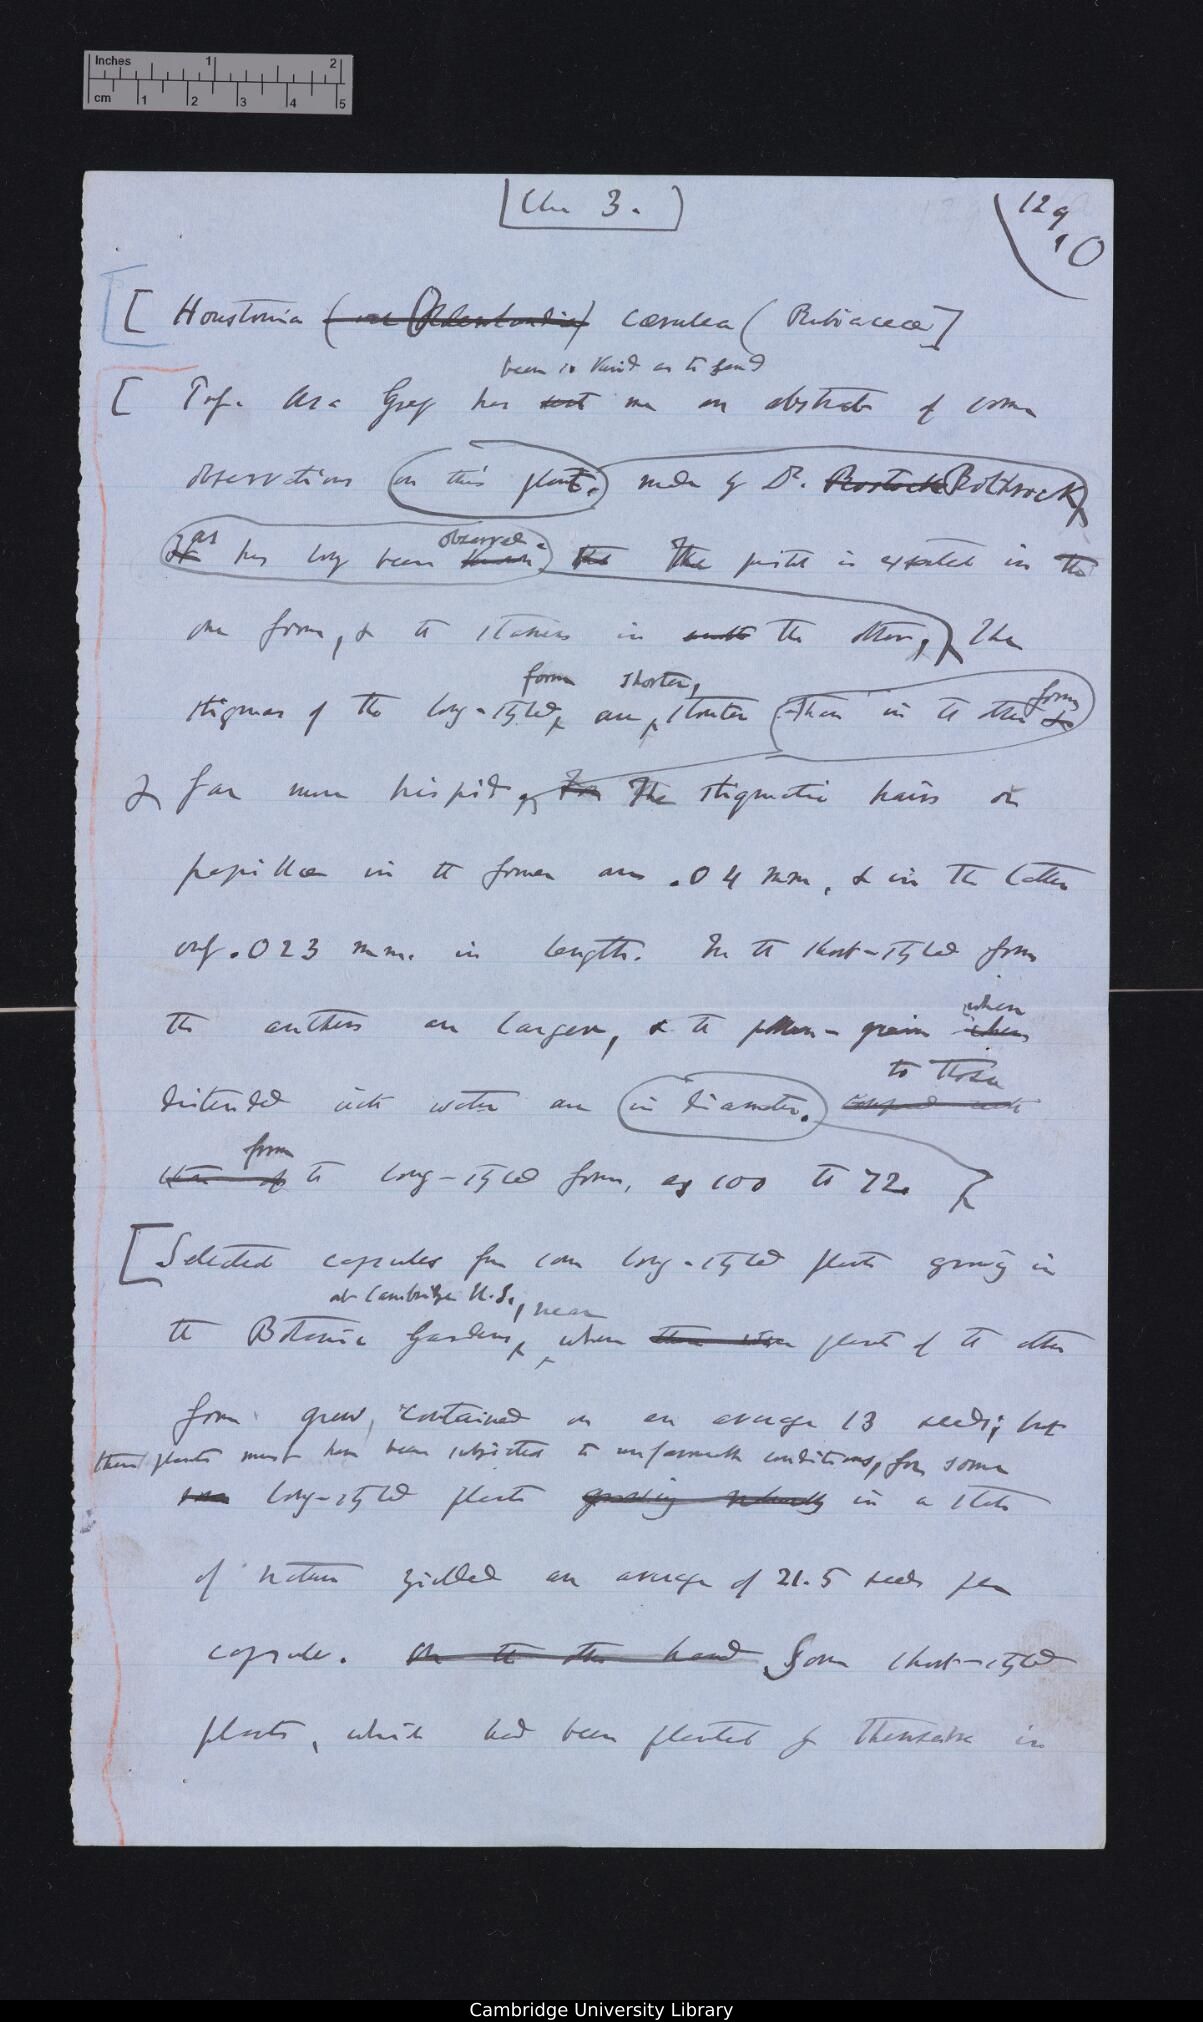 Inches 1 2
cm 1 2 3 4 5
Ch 3.
129
10
[ Houstonia (or Oldenlandia) cœrulea (Rubiaceæ]
been so kind as to send
[ Prof. Asa Gray has sent me an abstract of some
observations on this plant. made by Dr. Rostock Rothrock
as
It has long been known observed. the The pistil is exserted in the
one form, & the stamens in the other, The
form shorter, form
stigmas of the long-styled, are stouter than in the other &
& far more hispid, The stigmatic hairs or
papillæ in the former are .04 mm, & in the latter
only .023 mm. in length. In the short-styled form
when
the anthers are larger, & the pollen-grains when
to those
distended with water are in diameter. compared with
from
the long-styled form, as 100 to 72.
[Selected capsules from some long-styled plants growing in
at Cambridge U.S., near
the Botanic Gardens, where there were plants of the other
form grew, contained on an average 13 seeds; but
these plants must have been subjected to unfavourable conditions, for some
some long-styled plants growing naturally in a state
of nature yielded an average of 21.5 seeds per
capsule. On the other hand Some short-styled
plants, which had been planted by themselves in
Cambridge University Library